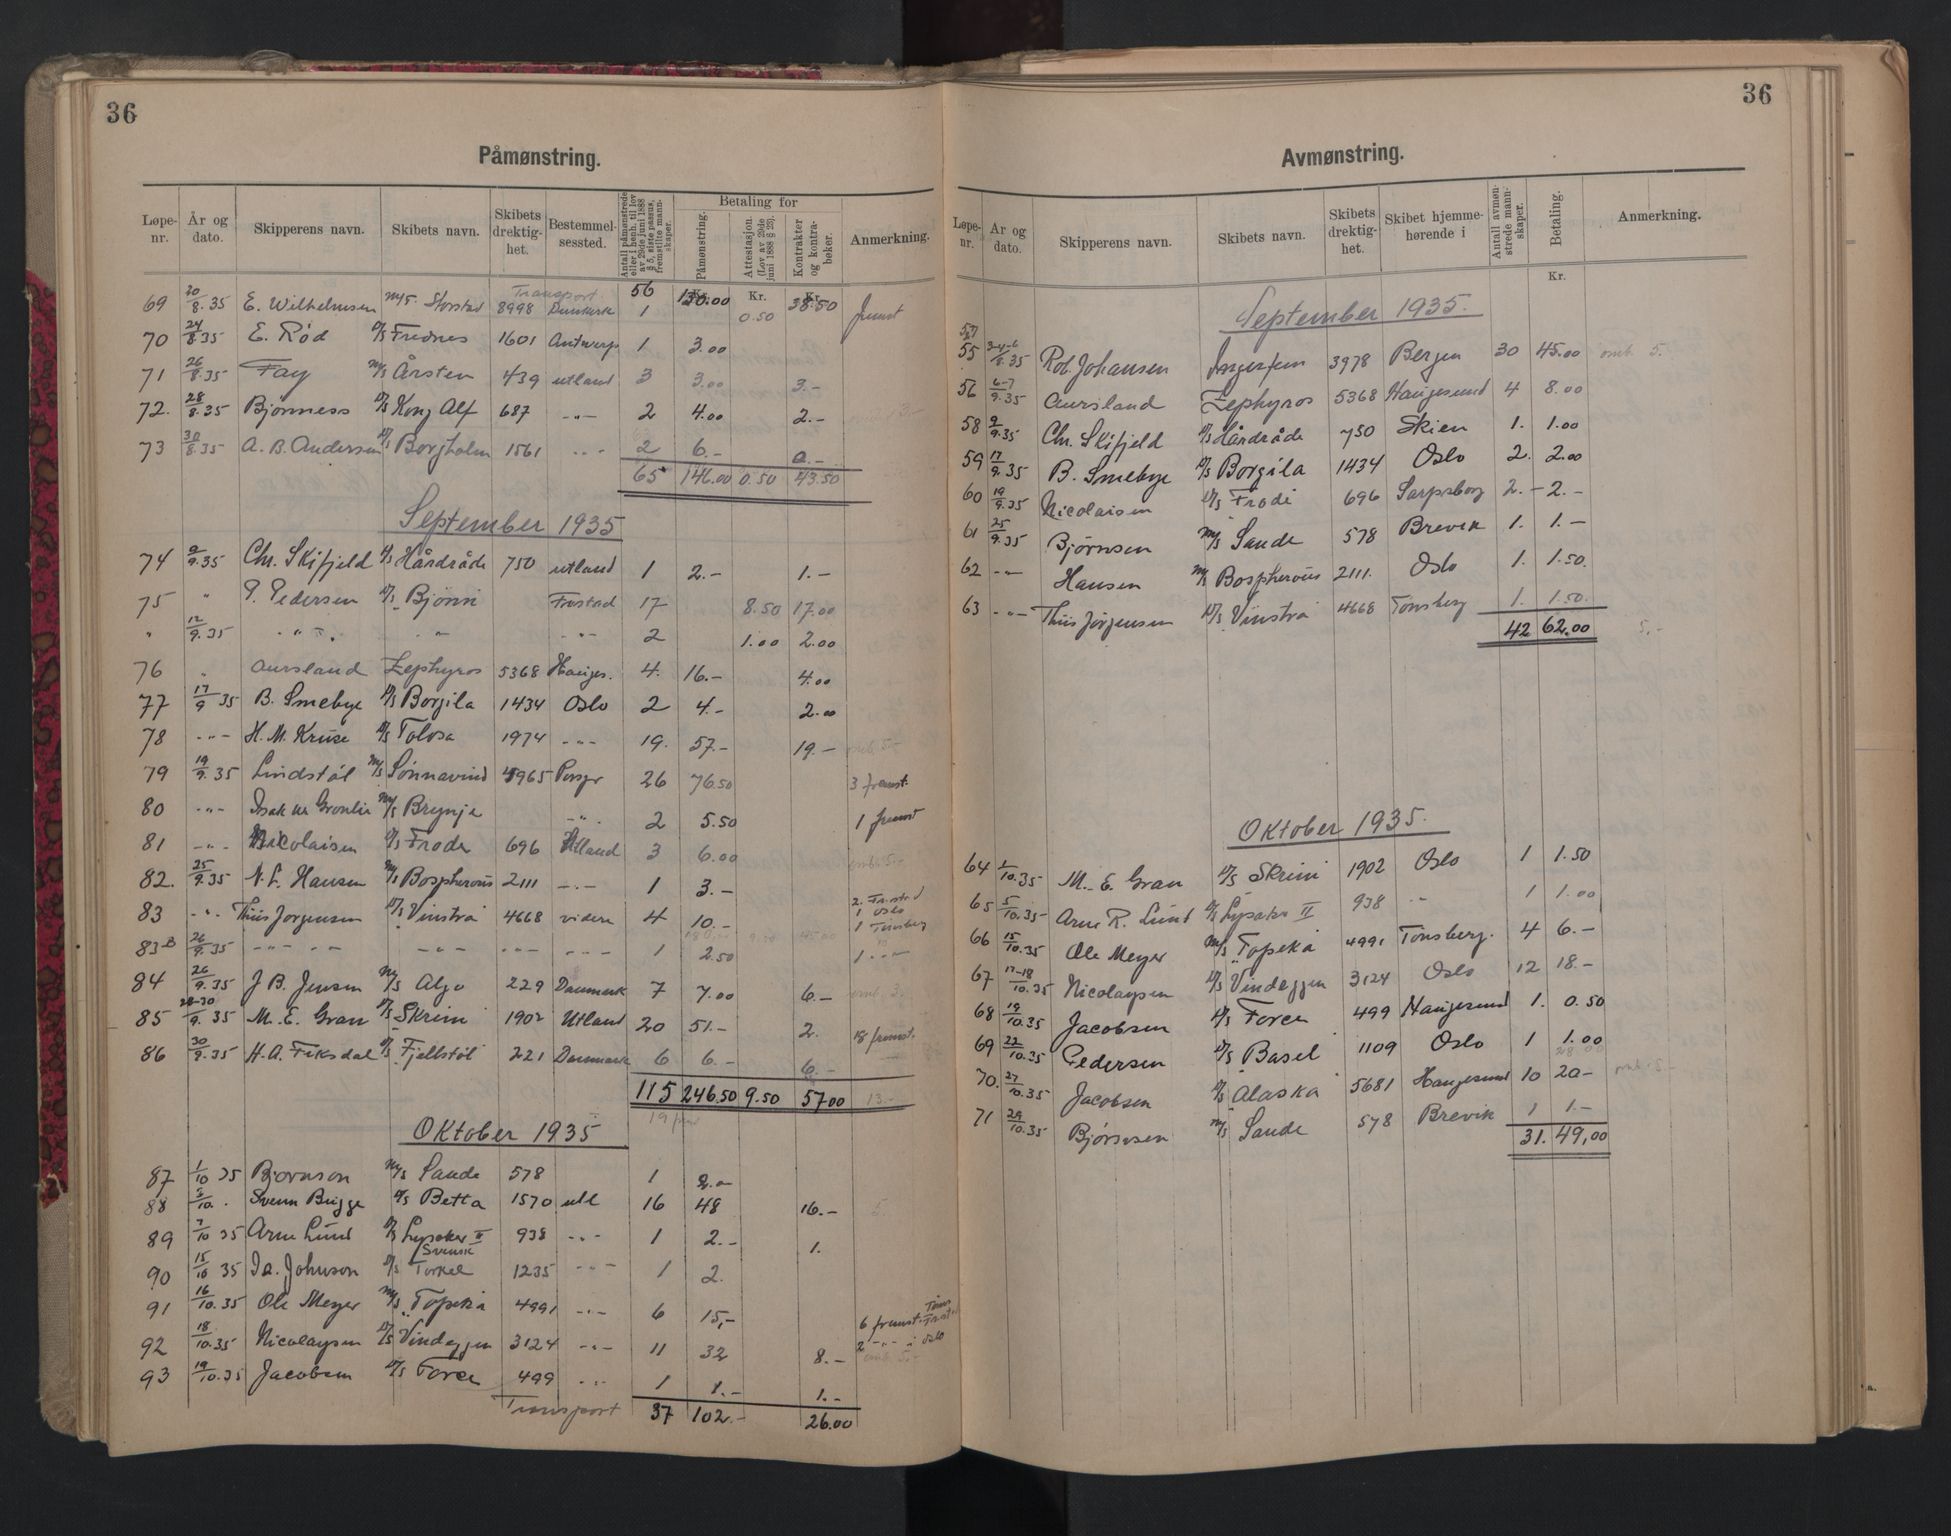 36
Påmønstring.
Løpe-nr. År og dato. Skipperens navn. Skibets navn. Skibets drektig-het. Bestemmel-sessted. Antall påmønstrede eller i henh. til lov av 29de juni 1888 § 5, siste passus, fremstilte mann-skaper. Betaling for Påmønstring. Attestasjon. (Lov av 29de juni 1888 § 25). Kontrakter og kontra-bøker. Anmerkning.
Kr. Kr. Kr.
Transport 56 130.00 38.50
69 20/8.35 E. Wilhelmsen M/S. Storstad 8998 Dunkerk 1 0.50 fremst
70 24/8.35 E. Rød D/S Frednes 1601 Antwerp 1 3.00
71 26/8.35 Fay M/S Årsten 439 utland 3 3.00 3.-
72. 28/8.35 Bjønness D/S Kong Alf 687 -"- 2 4.00 2.-
73 30/8.35 A. B. Andersen D/S Borgholm 1561 -"- 2 6.- 0.-
65 146.00 0.50 43.50
September 1935
74 2/9.35 Chr. Skifjeld D/S Hårdråde 750 utland 1 2.- 1.-
75 " P. Pedersen D/S Bjønn Frestad 17 8.50 17.00
" 12/9.35 -"- -"- -"- 2 1.00 2.00
76 " Aursland Zephyros 5368 Hauges. 4. 16.- 4.00
77 17/9 35 B. Smebye D/S Borgila 1434 Oslo 2 4.- 2.00
78 -"- H. M. Kruse D/S Tolosa 1974 -"- 19. 57.- 19.- omb. 5.-
79 19/9.35 Lindstøl M/S Sønnavind 4965 Porsgr 26 76.50 3 fremst.
80 -"- Isak M/S Brynje -"- 2 5.50 1 fremst
81 -"- Nicolaisen D/S Frode 696 Utland 3 6.00 omb. 5.-
82. 25/9.35 N. L. Hansen M/S Bospherous 2111 -"- 1 3.-
2. Fr.stad
83 -"- Thiis Jørgensen D/S Vinstra 4668 videre 4 10.- 1 Oslo
1 Tønsberg
83B 26/9.35 -"- -"- -"- -"- -"- 1 2.50 1 -"-
84 26/9.35 J B. Jensen M/S Algo 229 Danmark 7 7.00 6.- omb. 3.
85 28-30/9.35 M. E. Gran D/S Skrim 1902 Utland 20 51.- 2. 18 fremst.
86 30/9.35 H. A. Fiksdal D/S Fjellstøl 221 Danmark 6 6.- 6.-
115 246.50 9.50 57.00 13.-
Oktober 1935
87 1/10 35 Bjørnson M/S Sande 578 1 2.-
88 5/10. Svenn Brigge D/S Betta 1570 utl 16 48 16.- 5.
89 7/10 35 Arne Lund D/S Lysaker II 938 -"- 1 2.- 1.
Svensk
90 15/10 35 Ia. Johnson D/S Torkel 1235 -"- 1 2.
91 16/10.35 Ole Meyer M/S Topeka 4991 -"- 6 15,- 6 fremst. Tøns
Fr.st
92 18/10.35 Nicolaysen D/S Vindeggen 3124 -"- 11 32 8.- 2 -"- i Oslo
omb. 5.-
93 19/10.35 Jacobsen D/S Force 499 -"- 1 1.- 1.-
Transport 37 102.- 26.00
36
Avmønstring.
Løpe-nr. År og dato. Skipperens navn. Skibets navn. Skibets drektig-het. Skibet hjemme-hørende i Antall avmøn-strede mann-skaper. Betaling. Anmerkning.
Kr.
September 1935.
55 3-4-6/8.35 Rob. Johansen Ingerfem 3978 Bergen 30 45.00 omb. 5.
56 6-7/9.35 Aursland Zephyros 5368 Haugesund 4 8.00
58 2/9.35 Chr. Skifjeld D/S Hårdråde 750 Skien 1. 1.00
59 17/9.35 B. Smebye D/S Borgila 1434 Oslo 2. 2.00
60 19/9.35 Nicolaisen D/S Frode 696 Sarpsborg 2.- 2.-
61 25/9.35 Bjørnsen M/S Sande 578 Brevik 1. 1.-
62 -"- Hansen M/S Bospherous 2111. Oslo 1. 1.50.
63 -"- Thiis Jørgensen D/S Vinstra 4668 Tønsberg 1. 1.50.
42 62.00 5.-
Oktober 1935.
64 1/10.35 M. E. Gran D/S Skrim 1902 Oslo 1 1.50
65 5/10.35 Arne R. Lund D/S Lysaker II 938 -"- 1 1.00
66 15/10.35 Ole Meyer M/S Topeka 4991 Tønsberg. 4 6.-
67 17-18/10.35 Nicolaysen D/S Vindeggen 3124 Oslo 12 18.-
68 19/10.35 Jacobsen D/S Force 499 Haugesund 1. 0.50
69 22/10.35 Pedersen D/S Basel 1109 Oslo 1 1.00
70. 27/10.35 Jacobsen D/S Alaska 5681 Haugesund 10 20- omb. 5.-
71 29/10.35 Bjørnsen M/S Sande 578 Brevik 1 1.-
31. 49,00